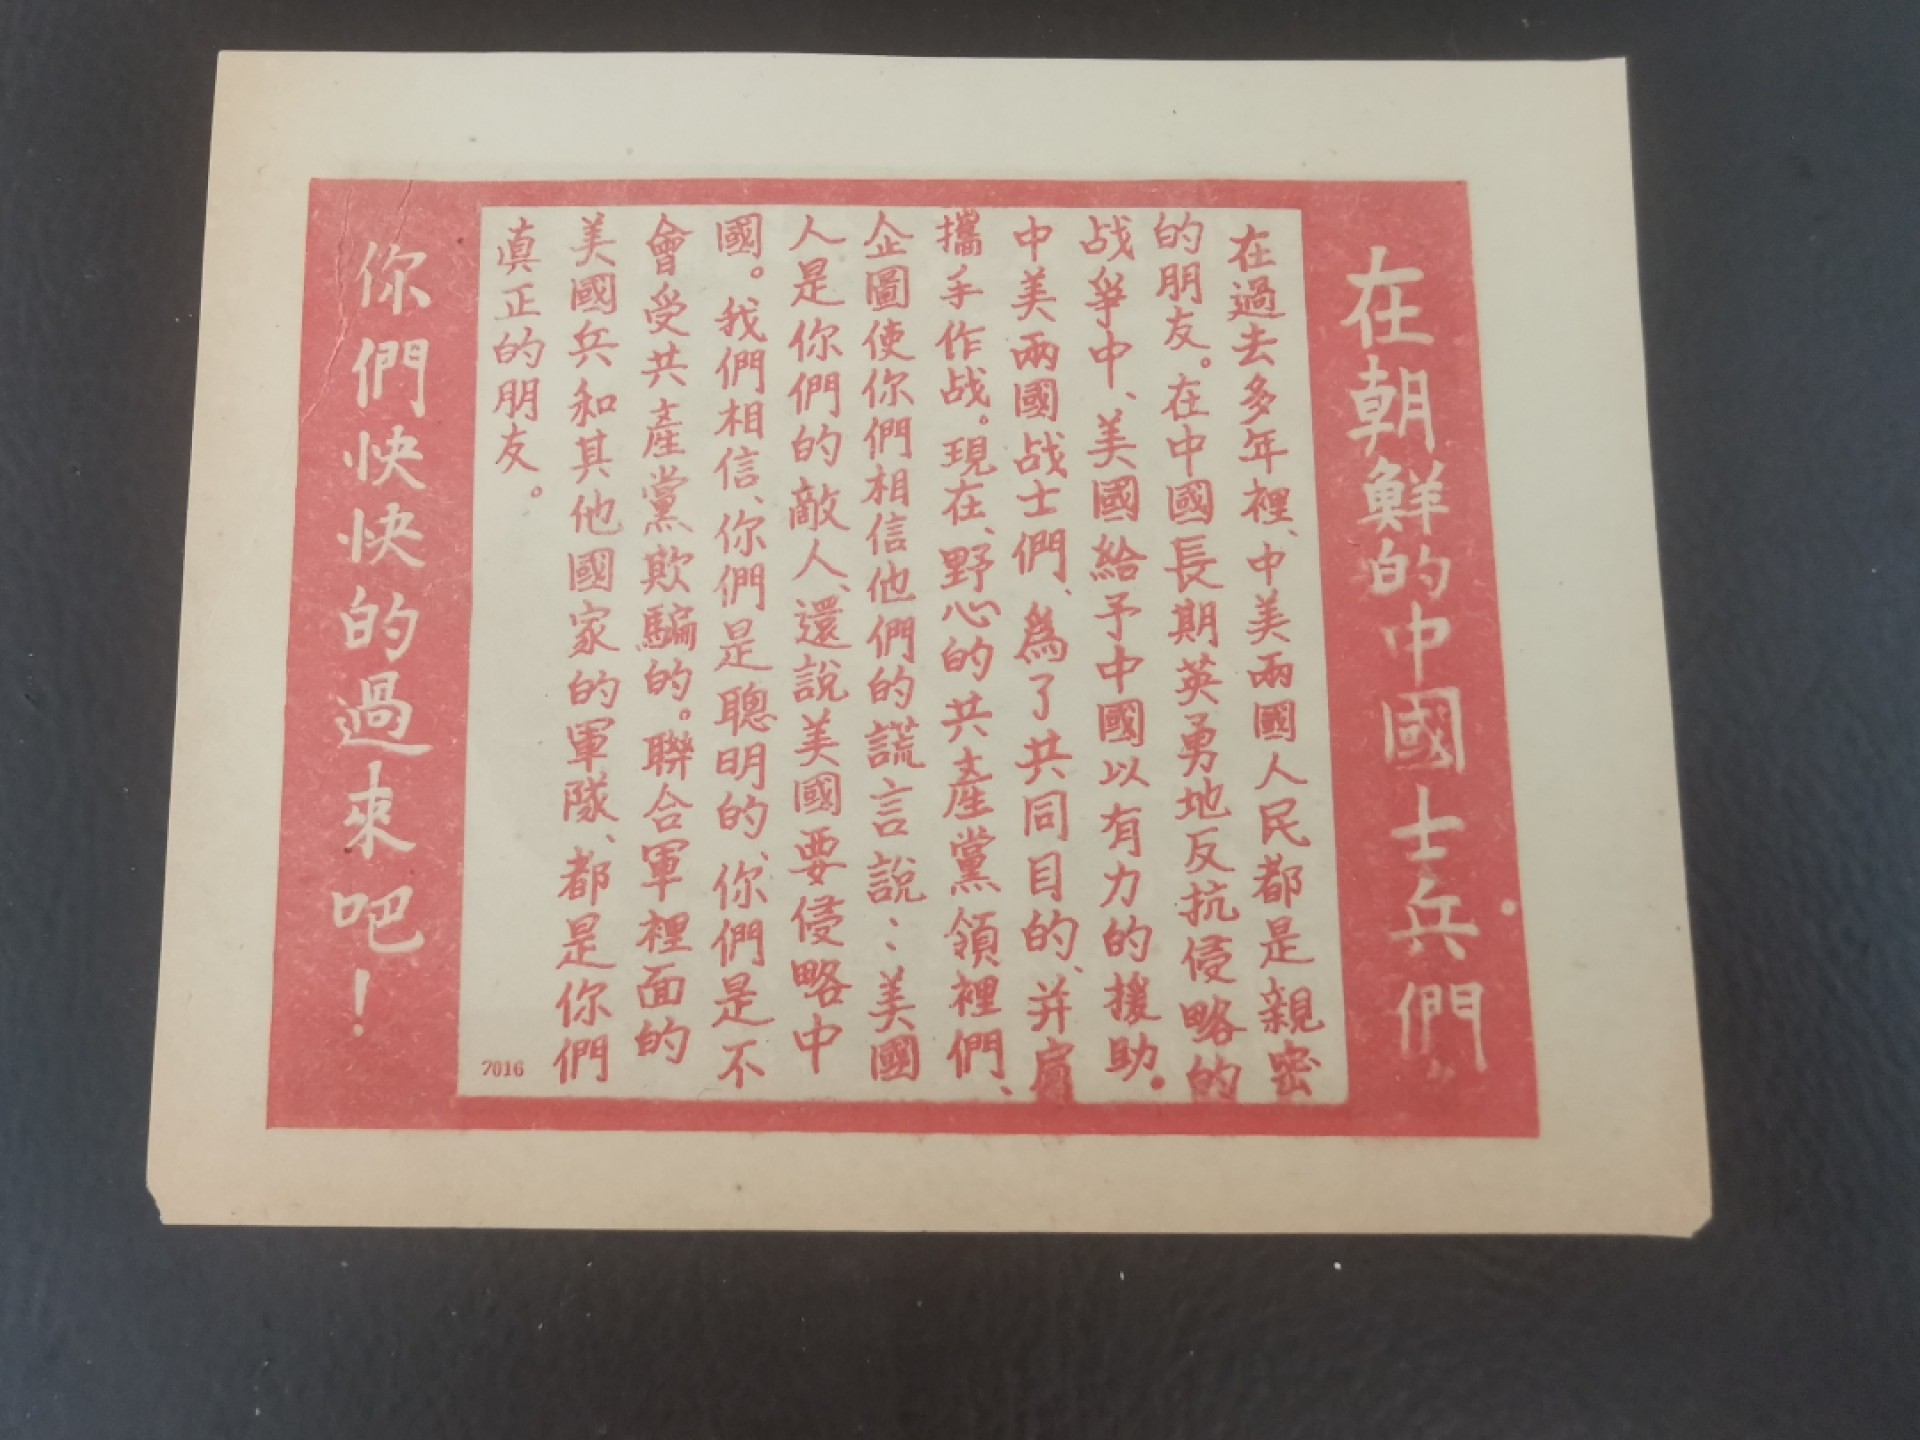 在朝鮮的中國士兵們"
在過去多年裡、中美兩國人民都是親密
的朋友。在中國長期英勇地反抗侵略的
战爭中、美國給予中國以有力的援助。
中美兩國战士們、為了共同目的、并肩
攜手作战。現在、野心的共產黨領裡們、
企圖使你們相信他們的謊言說：美國
人是你們的敵人、還說美國要侵略中
國。我們相信、你們是聰明的、你們是不
會受共產黨欺騙的。聯合軍裡面的
美國兵和其他國家的軍隊、都是你們
真正的朋友。
7016
你們快快的過來吧！